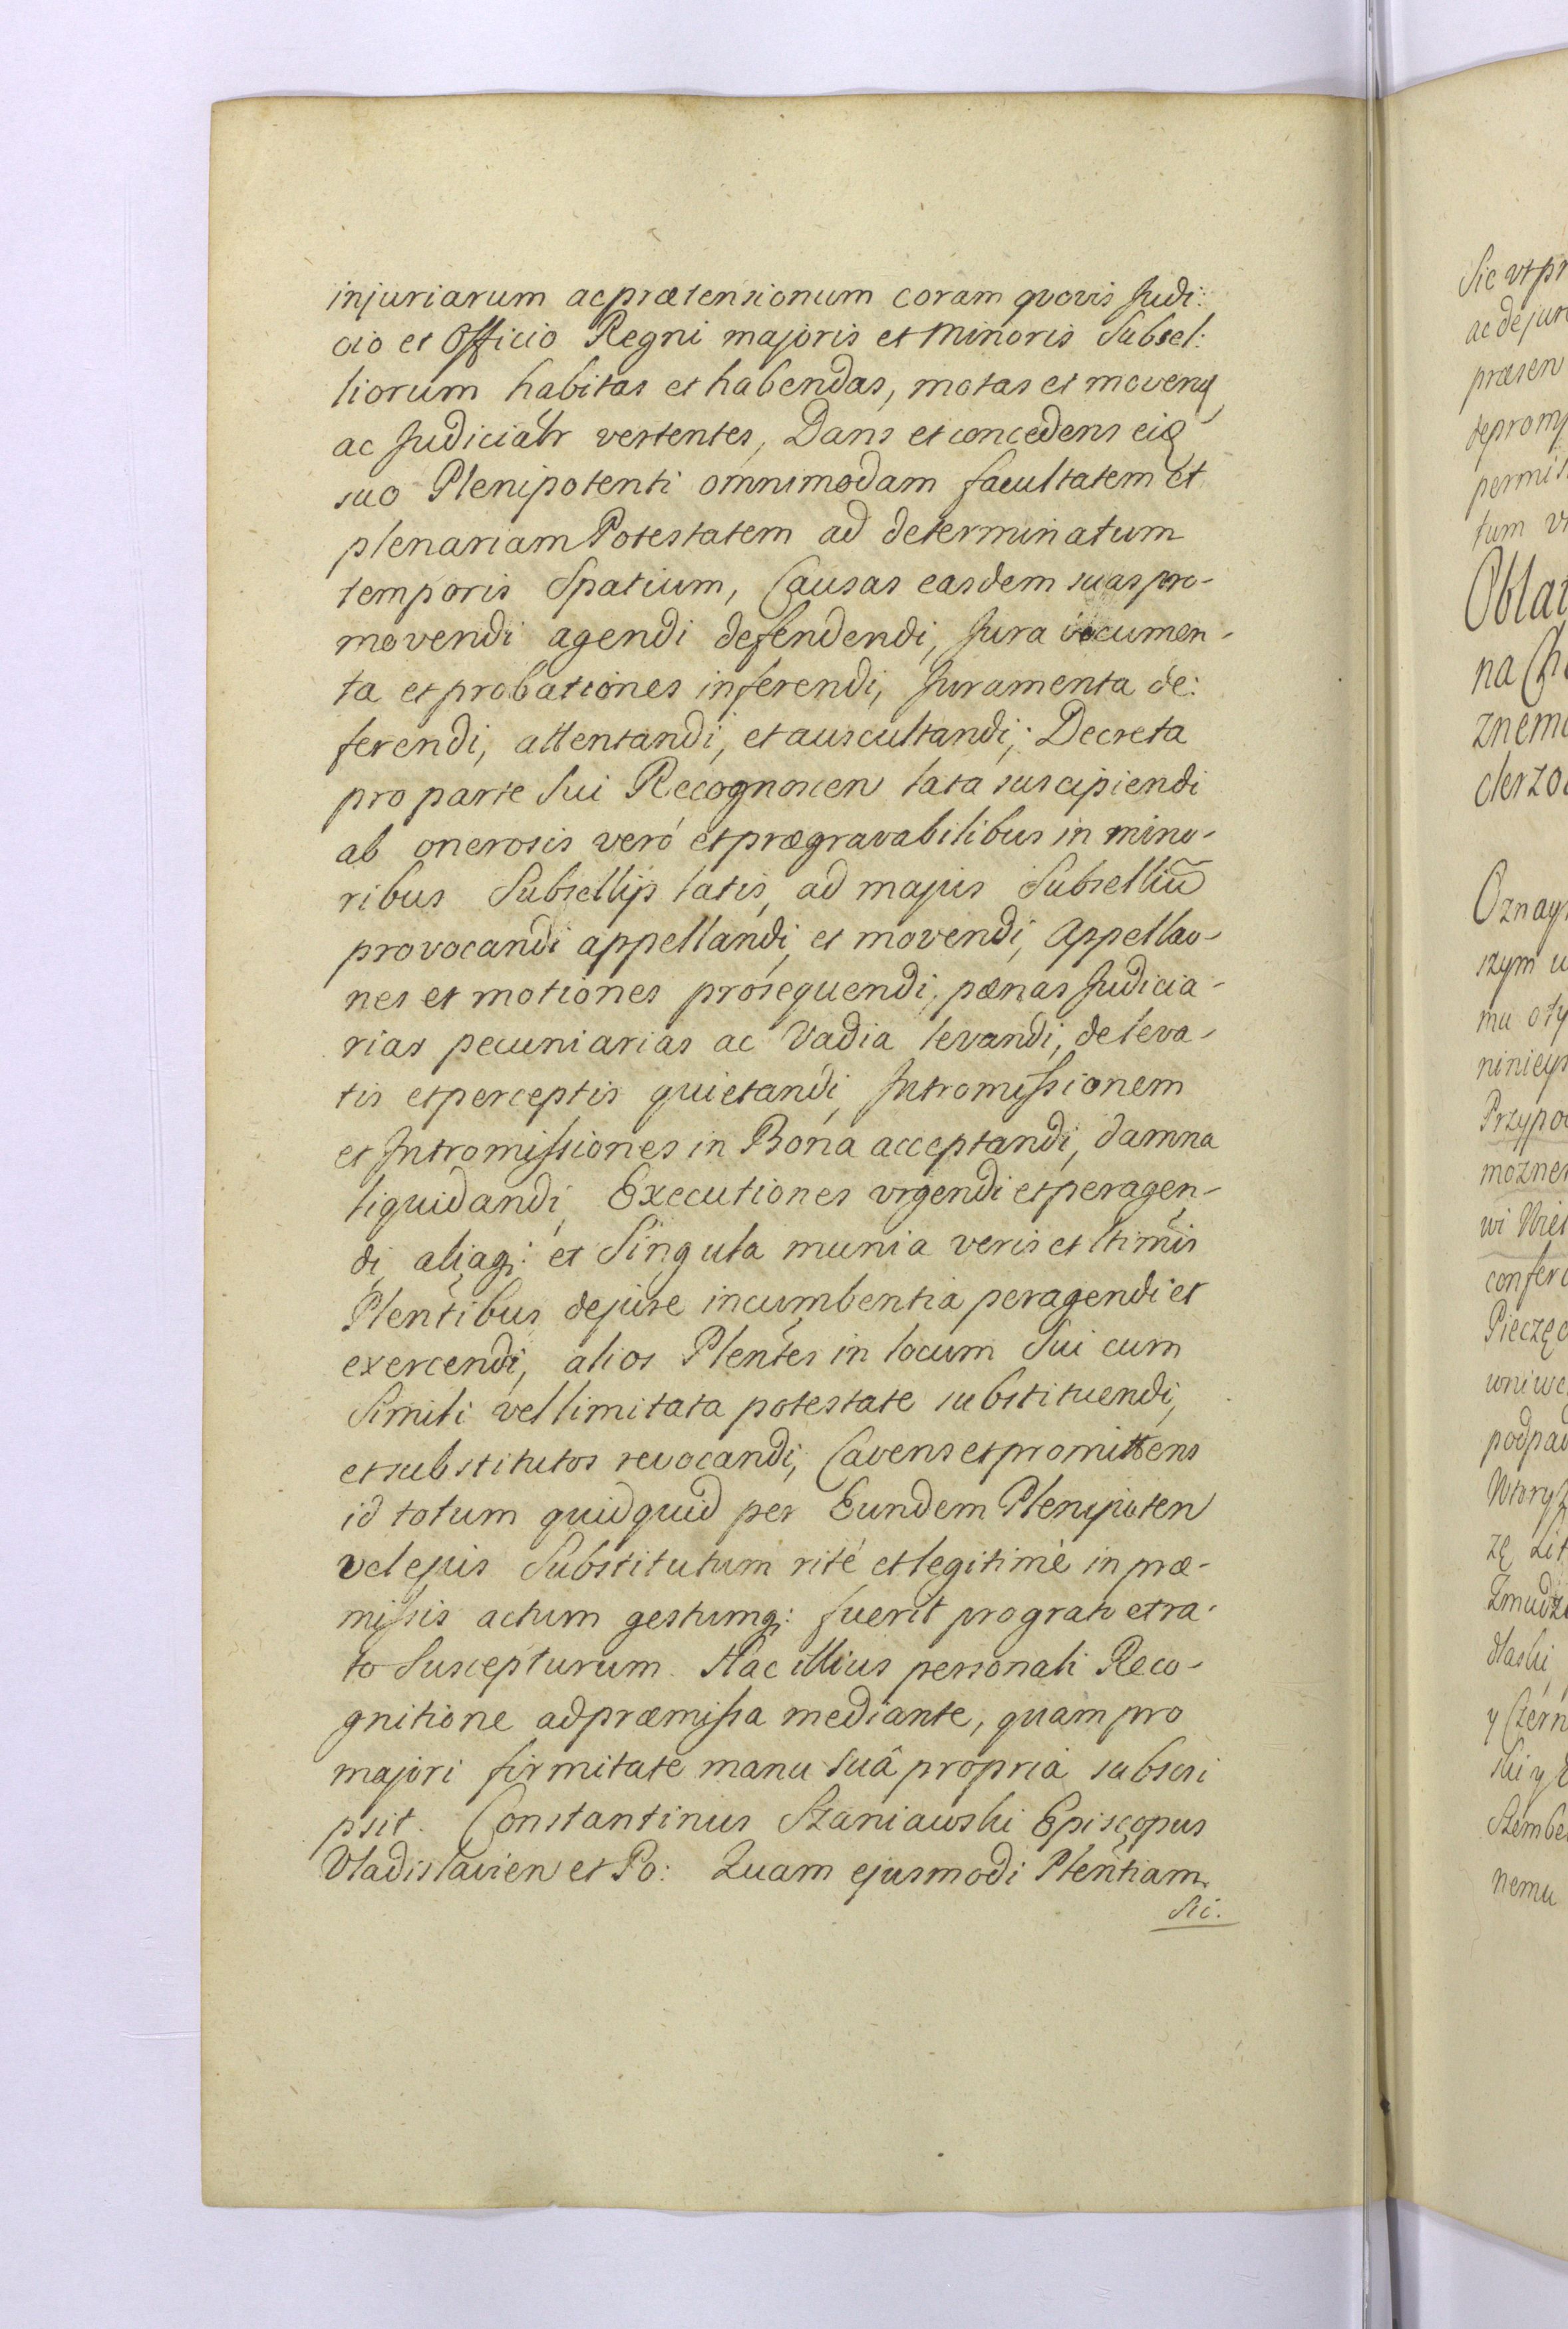 injuriarum ac prætensionum coram quovis Judi:
cio et Officio Regni majoris et minoris Subsel:
liorum habitas et habendas, motas et moven
ac Judicialr vertentes, Dans et concedens eid
suo Plenipotenti omnimodam facultatem et
plenariam Potestatem ad determinatum
temporis Spatium, Causas easdem suas pro-
movendi agendi defendendi, Jura documen-
ta et probationes inferendi, Juramenta de:
ferendi, attentandi, et auscultandi; Decreta
pro parte Sui Recognoscen lata suscipiendi
ab onerosis veró et prægravabilibus in mino-
ribus Subsellijs latis, ad majus Subselliũ
provocandi appellandi, et movendi, Appellao-
nes et motiones prosequendi, pænas Judicia-
rias pecuniarias ac Vadia levandi, de leva-
tis et perceptis quietandi, Intromissionem
et Intromissiones in Bona acceptandi, damna
liquidandi, Executiones urgendi et peragen-
di, aliaq: et Singula munia veris et ltimis
Plentibus de jure incumbentia peragendi et
exercendi, alios Plentes in locum Sui cum
Simili vel limitata potestate substituendi,
et substitutos revocandi, Cavens et promittens
id totum quidquid per Eundem Plenipoten
vel ejus Substitutum rité et legitimè in præ-
missis actum gestumq: fuerit pro grato et ra-
to Suscepturum. Hac illius personali Reco-
gnitione ad præmissa mediante, quam pro
majori firmitate manu Suâ propria subscri
psit. Constantinus Szaniawski Episcopus
Vladislavien et Po: Quam ejusmodi Plentiam
Sic.
Sic ut pr
ac de jure
præsen
deprom
permis
tum
Oblat
na Ch
znem
derzo
Oznay
szym u
mu oty
ninieys
Przypo
mozne
wi Wiel
confer
Pieczęc
uniwe
podpad
Wtory
zę Lit
Zmudz
dlaski
y Czern
ski y
Szembe
nemu